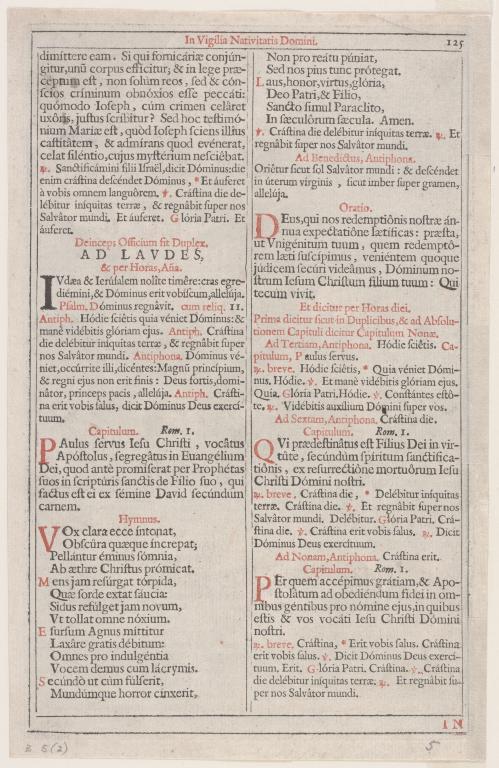 In Vigília Nativitatis Domini. 125
dimíttere eam. Si qui fornicáriæ conjún-
gitur, unũ corpus efficitur; & in lege præ-
ceptum est, non solùm reos, sed & cón-
scios criminum obnóxios esse peccáti:
quómodo Ioseph, cùm crimen celáret
uxóris, justus scríbitur? Sed hoc testimó-
nium Mariæ est, quòd Ioseph sciens illíus
castitátem, & admírans quod evénerat,
celat siléntio, cujus mystérium nesciébat.
℟. Sanctificámini fílii Israël, dicit Dóminus: die
enim crástina descéndet Dóminus, * Et áuferet
à vobis omnem languórem. ℣. Crástina die de-
lébitur iníquitas terræ, & regnábit super nos
Salvátor mundi. Et áuferet. Glória Patri. Et
áuferet.
Deinceps Officium fit Duplex.
AD LAVDES,
& per Horas, Aña.
IVdæa & Ierúsalem nolíte timére: cras egre-
diémini, & Dóminus erit vobíscum, allelúja.
Psalm. Dóminus regnávit. cum reliq. 11.
Antiph. Hódie sciétis quia véniet Dóminus: &
manè vidébitis glóriam ejus. Antiph. Crástina
die delébitur iníquitas terræ, & regnábit super
nos Salvátor mundi. Antiphona. Dóminus vé-
niet, occúrrite illi, dicéntes: Magnũ princípium,
& regni ejus non erit finis: Deus fortis, domi-
nátor, princeps pacis, allelúja. Antiph. Crásti-
na erit vobis salus, dicit Dóminus Deus exercí-
tuum.
Capitulum. Rom. 1.
PAulus servus Iesu Christi, vocátus
Apóstolus, segregátus in Euangélium
Dei, quod antè promíserat per Prophétas
suos in scriptúris sanctis de Fílio suo, qui
factus est ei ex sémine David secúndùm
carnem.
Hymnus.
VOx clara ecce íntonat,
Obscúra quæque íncrepat;
Pellántur éminus sómnia,
Ab æthre Christus prómicat.
Mens jam resúrgat tórpida,
Quæ sorde extat sáucia:
Sidus refúlget jam novum,
Vt tollat omne nóxium.
E sursum Agnus míttitur
Laxáre gratis débitum:
Omnes pro indulgéntia
Vocem demus cum lácrymis.
Secúndò ut cùm fúlserit,
Mundúmque horror cínxerit,
Non pro reátu púniat,
Sed nos pius tunc prótegat.
Laus, honor, virtus, glória,
Deo Patri, & Fílio,
Sancto simul Paráclito,
In sæculórum sæcula. Amen.
℣. Crástina die delébitur iníquitas terræ. ℟. Et
regnábit super nos Salvátor mundi.
Ad Benedictus, Antiphona.
Oriétur sicut sol Salvátor mundi: & descéndet
in úterum virginis, sicut imber super gramen,
allelúja.
Oratio.
DEus, qui nos redemptiónis nostræ án-
nua expectatióne lætíficas: præsta,
ut Vnigénitum tuum, quem redemptó-
rem læti suscípimus, veniéntem quoque
júdicem secúri videámus, Dóminum no-
strum Iesum Christum fílium tuum: Qui
tecum vivit.
Et dicitur per Horas diei.
Prima dicitur sicut in Duplicibus, & ad Absolu-
tionem Capituli dicitur Capitulum Nonæ.
Ad Tertiam, Antiphona. Hódie sciétis. Ca-
pitulum, Paulus servus.
℟. breve. Hódie sciétis, * Quia véniet Dómi-
nus. Hódie. ℣. Et manè vidébitis glóriam ejus.
Quia. Glória Patri. Hódie. ℣. Constántes estó-
te. ℟. Vidébitis auxílium Dómini super vos.
Ad Sextam, Antiphona. Crástina die.
Capitulum. Rom. 1.
QVi prædestinátus est Fílius Dei in vir-
túte, secúndùm spíritum sanctificá-
tiónis, ex resurrectióne mortuórum Iesu
Christi Dómini nostri.
℟. breve. Crástina die, * Delébitur iníquitas
terræ. Crástina die. ℣. Et regnábit super nos
Salvátor mundi. Delébitur. Glória Patri. Crá-
stina die. ℣. Crástina erit vobis salus. ℟. Dicit
Dóminus Deus exercítuum.
Ad Nonam, Antiphona. Crástina erit.
Capitulum. Rom. 1.
PEr quem accépimus grátiam, & Apo-
stolátum ad obediéndum fídei in óm-
nibus géntibus pro nómine ejus, in quibus
estis & vos vocáti Iesu Christi Dómini
nostri.
℟. breve. Crástina, * Erit vobis salus. Crástina
erit vobis salus. ℣. Dicit Dóminus Deus exercí-
tuum. Erit. Glória Patri. Crástina. ℣. Crástina
die delébitur iníquitas terræ. ℟. Et regnábit su-
per nos Salvátor mundi.
IN
B 5 (2) 5